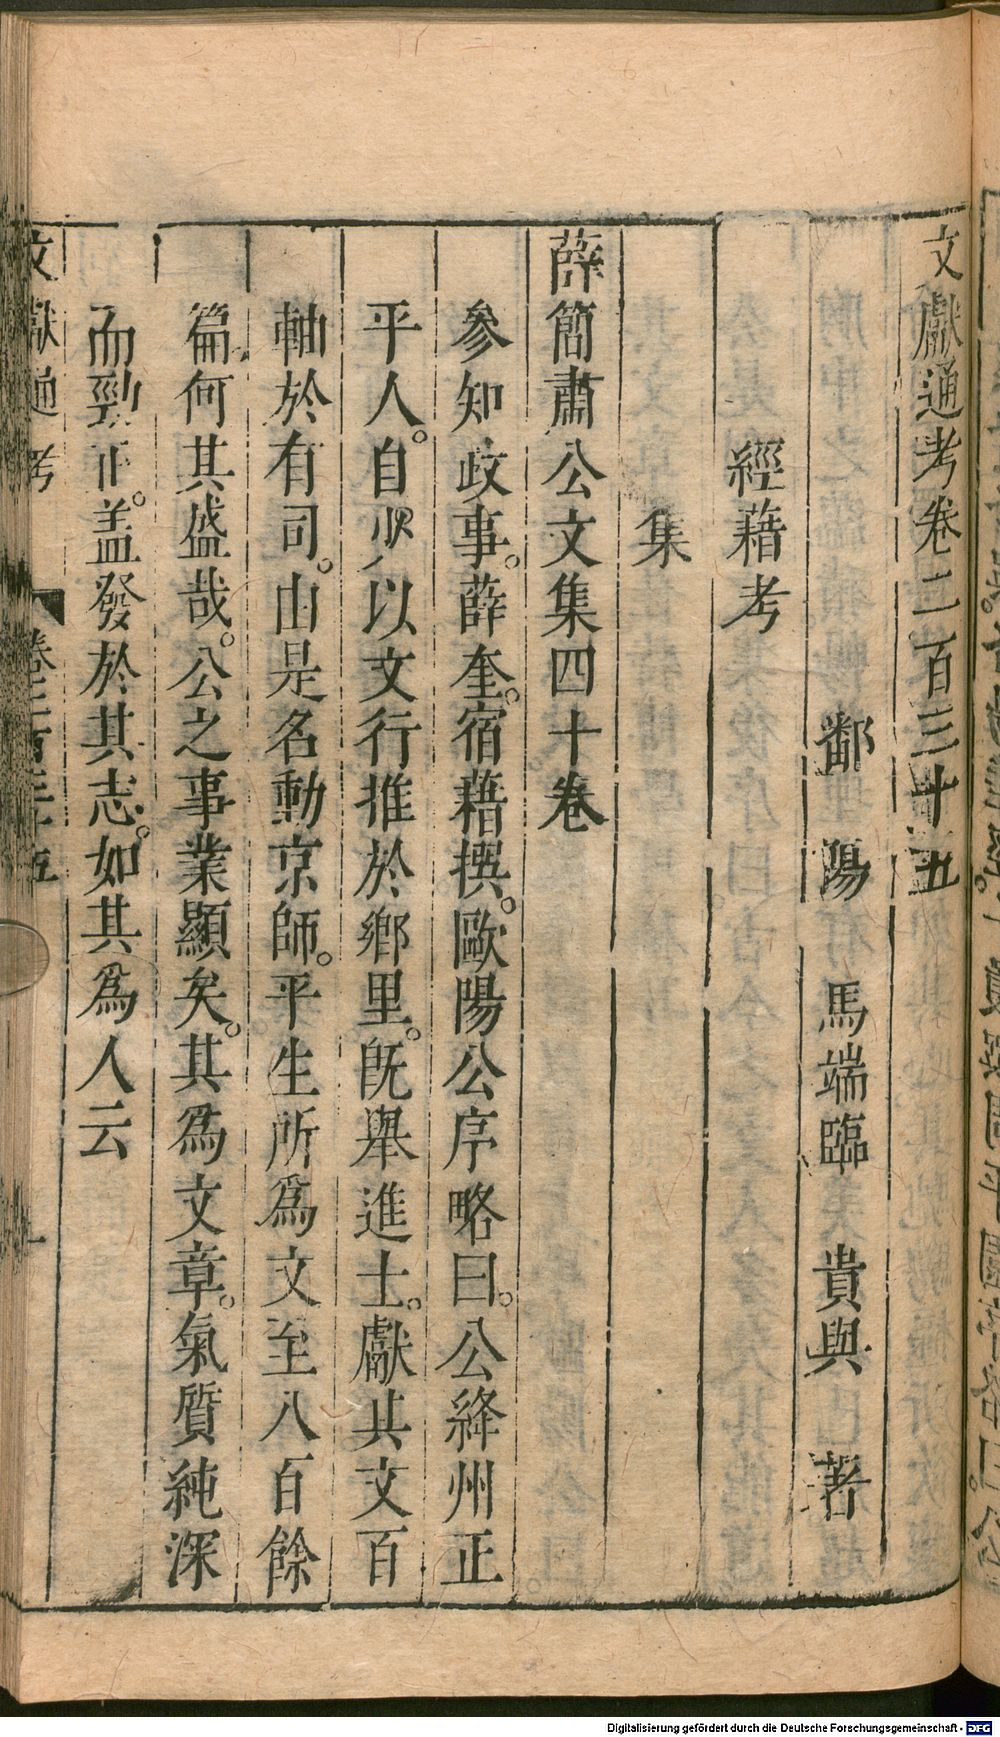 文獻通考卷二百三十五
鄱陽馬端臨貴與著
經藉考
集
薛簡肅公文集四十卷
參知政事。薛奎。宿藉撰。歐陽公序略曰。公絳州正
平人。自少以文行推於鄉里。旣舉進士。獻其文百
軸於有司。由是名動京師。平生所爲文至八百餘
篇何其盛哉。公之事業顯矣。其爲文章。氣質純深
而勁正。盖發於其志。如其爲人云
文獻通考 卷二百三十五 一
Digitalisierung gefördert durch die Deutsche Forschungsgemeinschaft - DFG